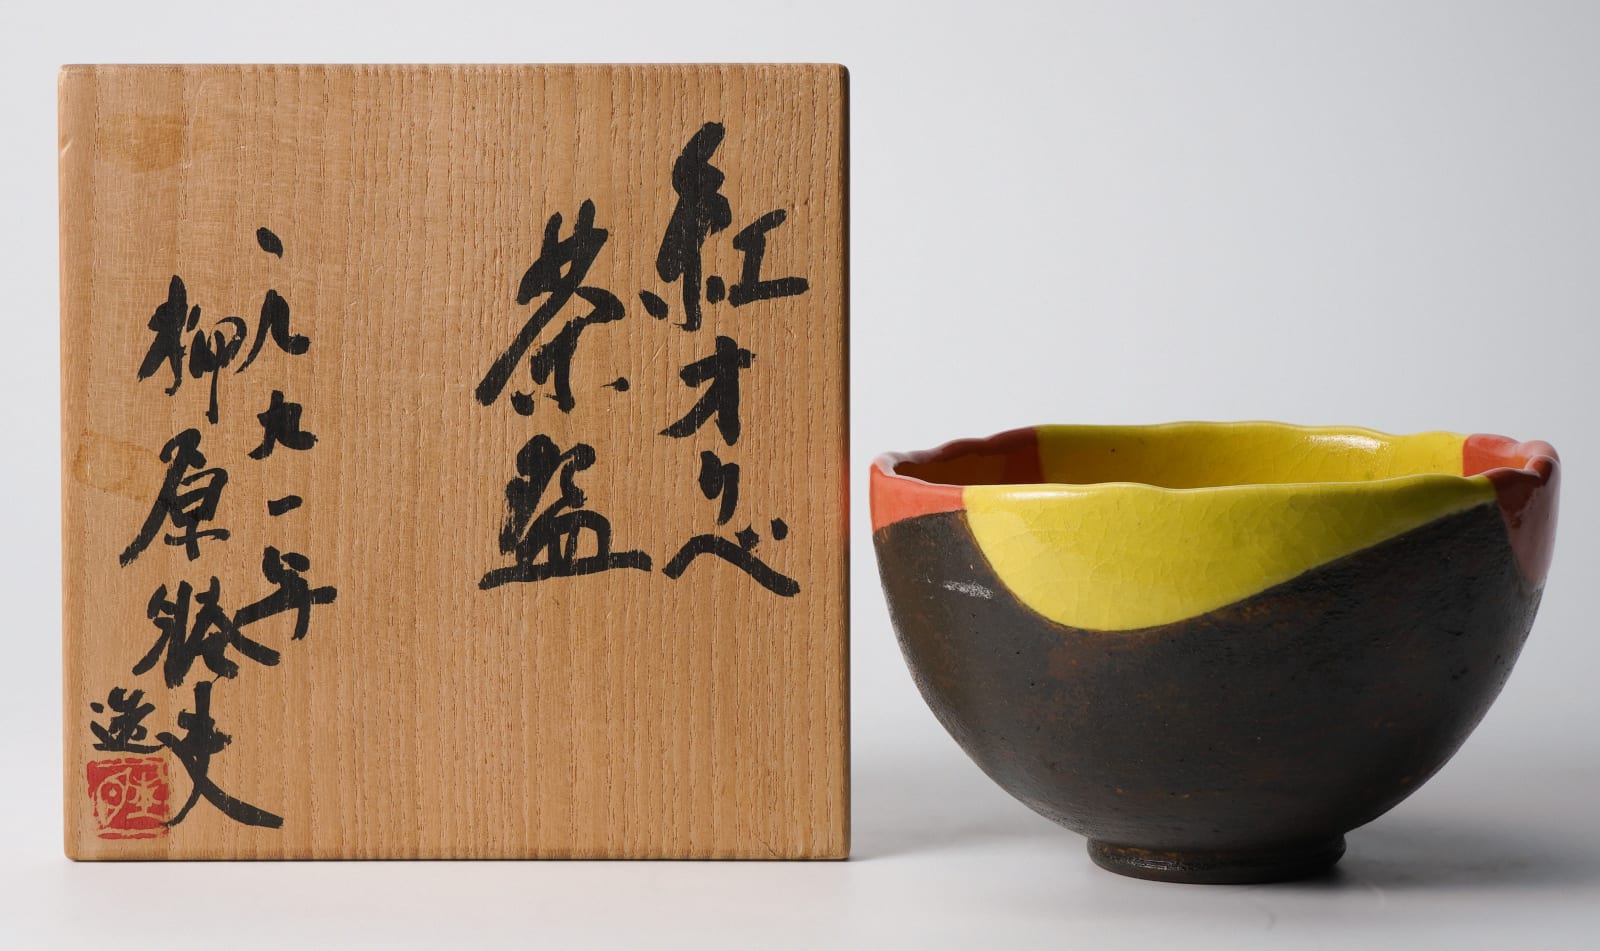 紅オリベ
茶盌
一九九一年
柳原睦夫
造